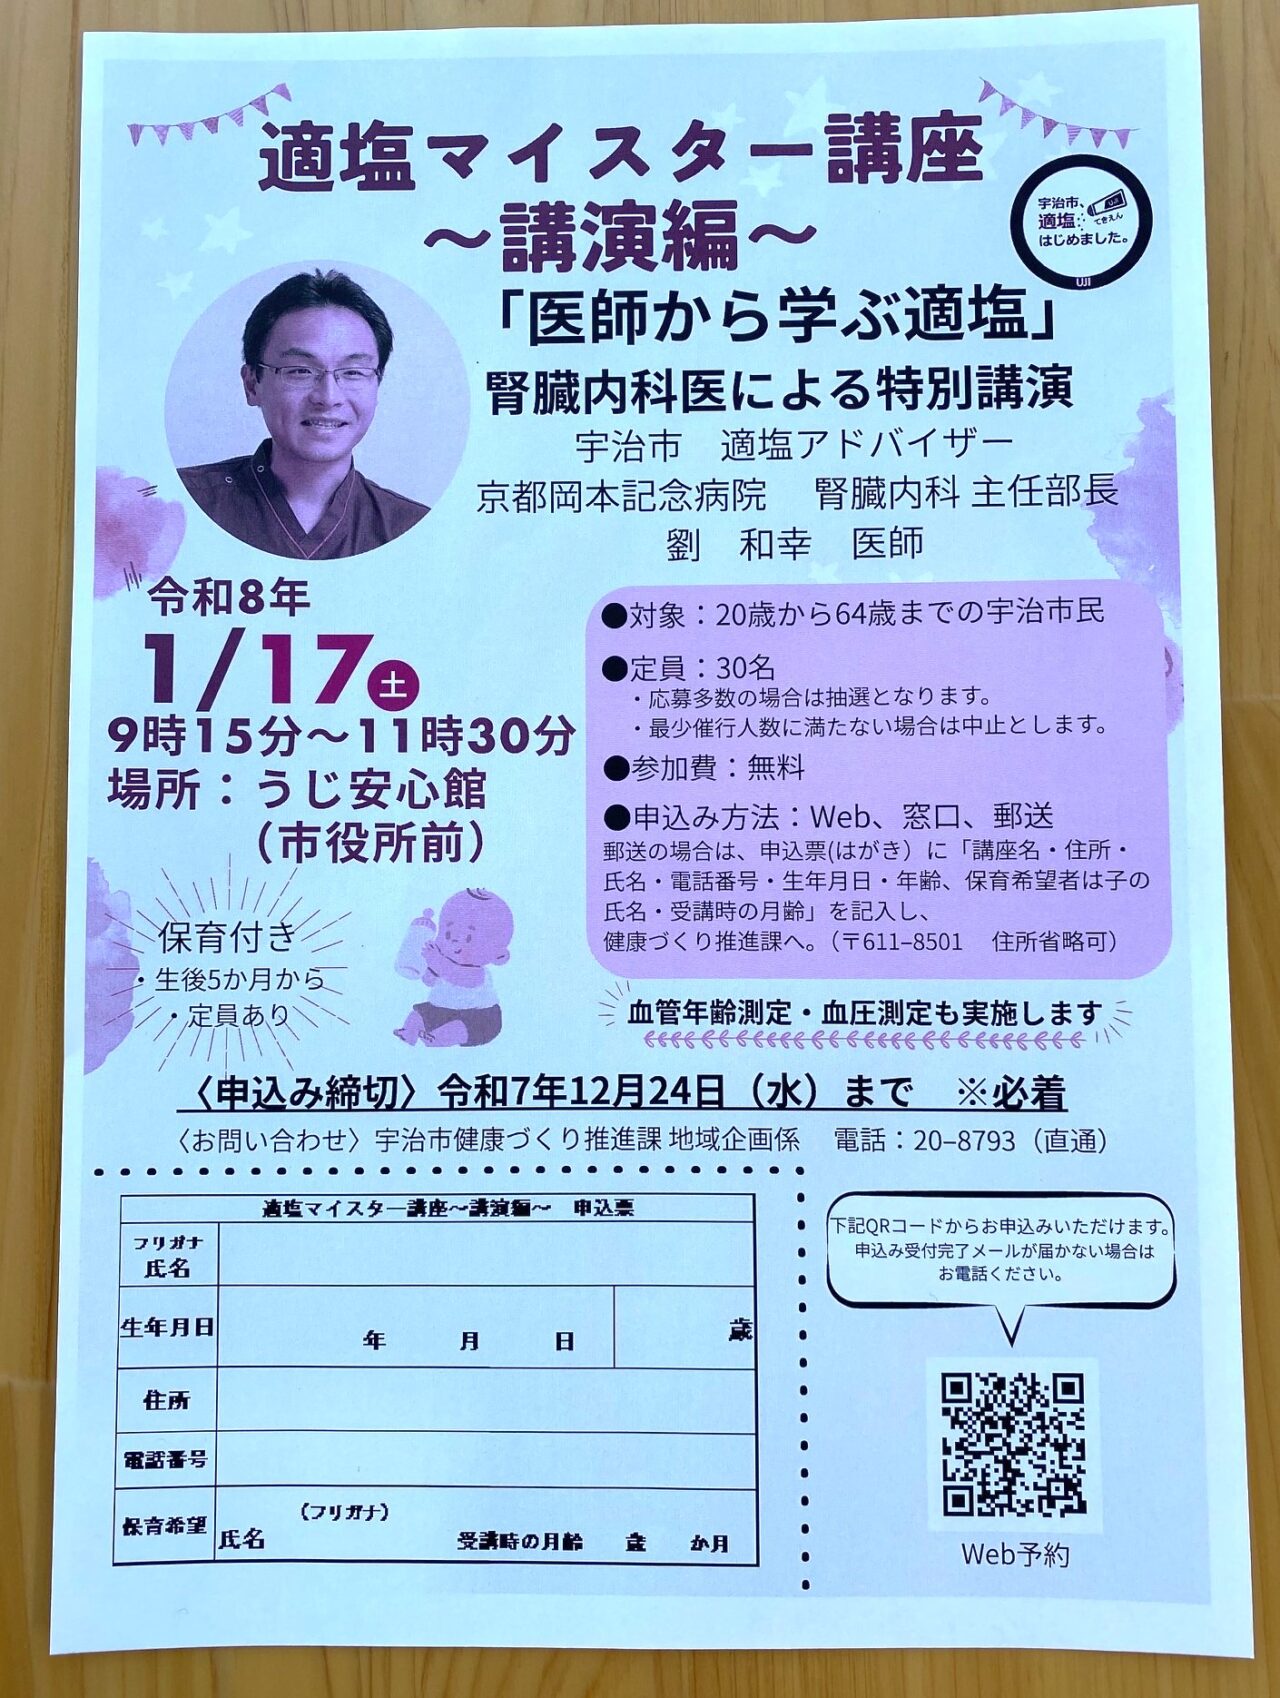 適塩マイスター講座
～講演編～
宇治市、
適塩
てきえん
はじめました。
UJI
「医師から学ぶ適塩」
腎臓内科医による特別講演
宇治市　適塩アドバイザー
京都岡本記念病院　腎臓内科 主任部長
劉　和幸　医師
令和8年
1/17土
9時15分～11時30分
場所：うじ安心館
（市役所前）
●対象：20歳から64歳までの宇治市民
●定員：30名
・応募多数の場合は抽選となります。
・最少催行人数に満たない場合は中止とします。
●参加費：無料
●申込み方法：Web、窓口、郵送
郵送の場合は、申込票(はがき）に「講座名・住所・
氏名・電話番号・生年月日・年齢、保育希望者は子の
氏名・受講時の月齢」を記入し、
健康づくり推進課へ。（〒611–8501　住所省略可）
保育付き
・生後5か月から
・定員あり
血管年齢測定・血圧測定も実施します
〈申込み締切〉令和7年12月24日（水）まで　※必着
〈お問い合わせ〉宇治市健康づくり推進課 地域企画係　電話：20–8793（直通）
適塩マイスター講座～講演編～　申込票
フリガナ
氏名
生年月日　年　月　日　歳
住所
電話番号
保育希望
（フリガナ）
氏名　受講時の月齢　歳　か月
下記QRコードからお申込みいただけます。
申込み受付完了メールが届かない場合は
お電話ください。
Web予約